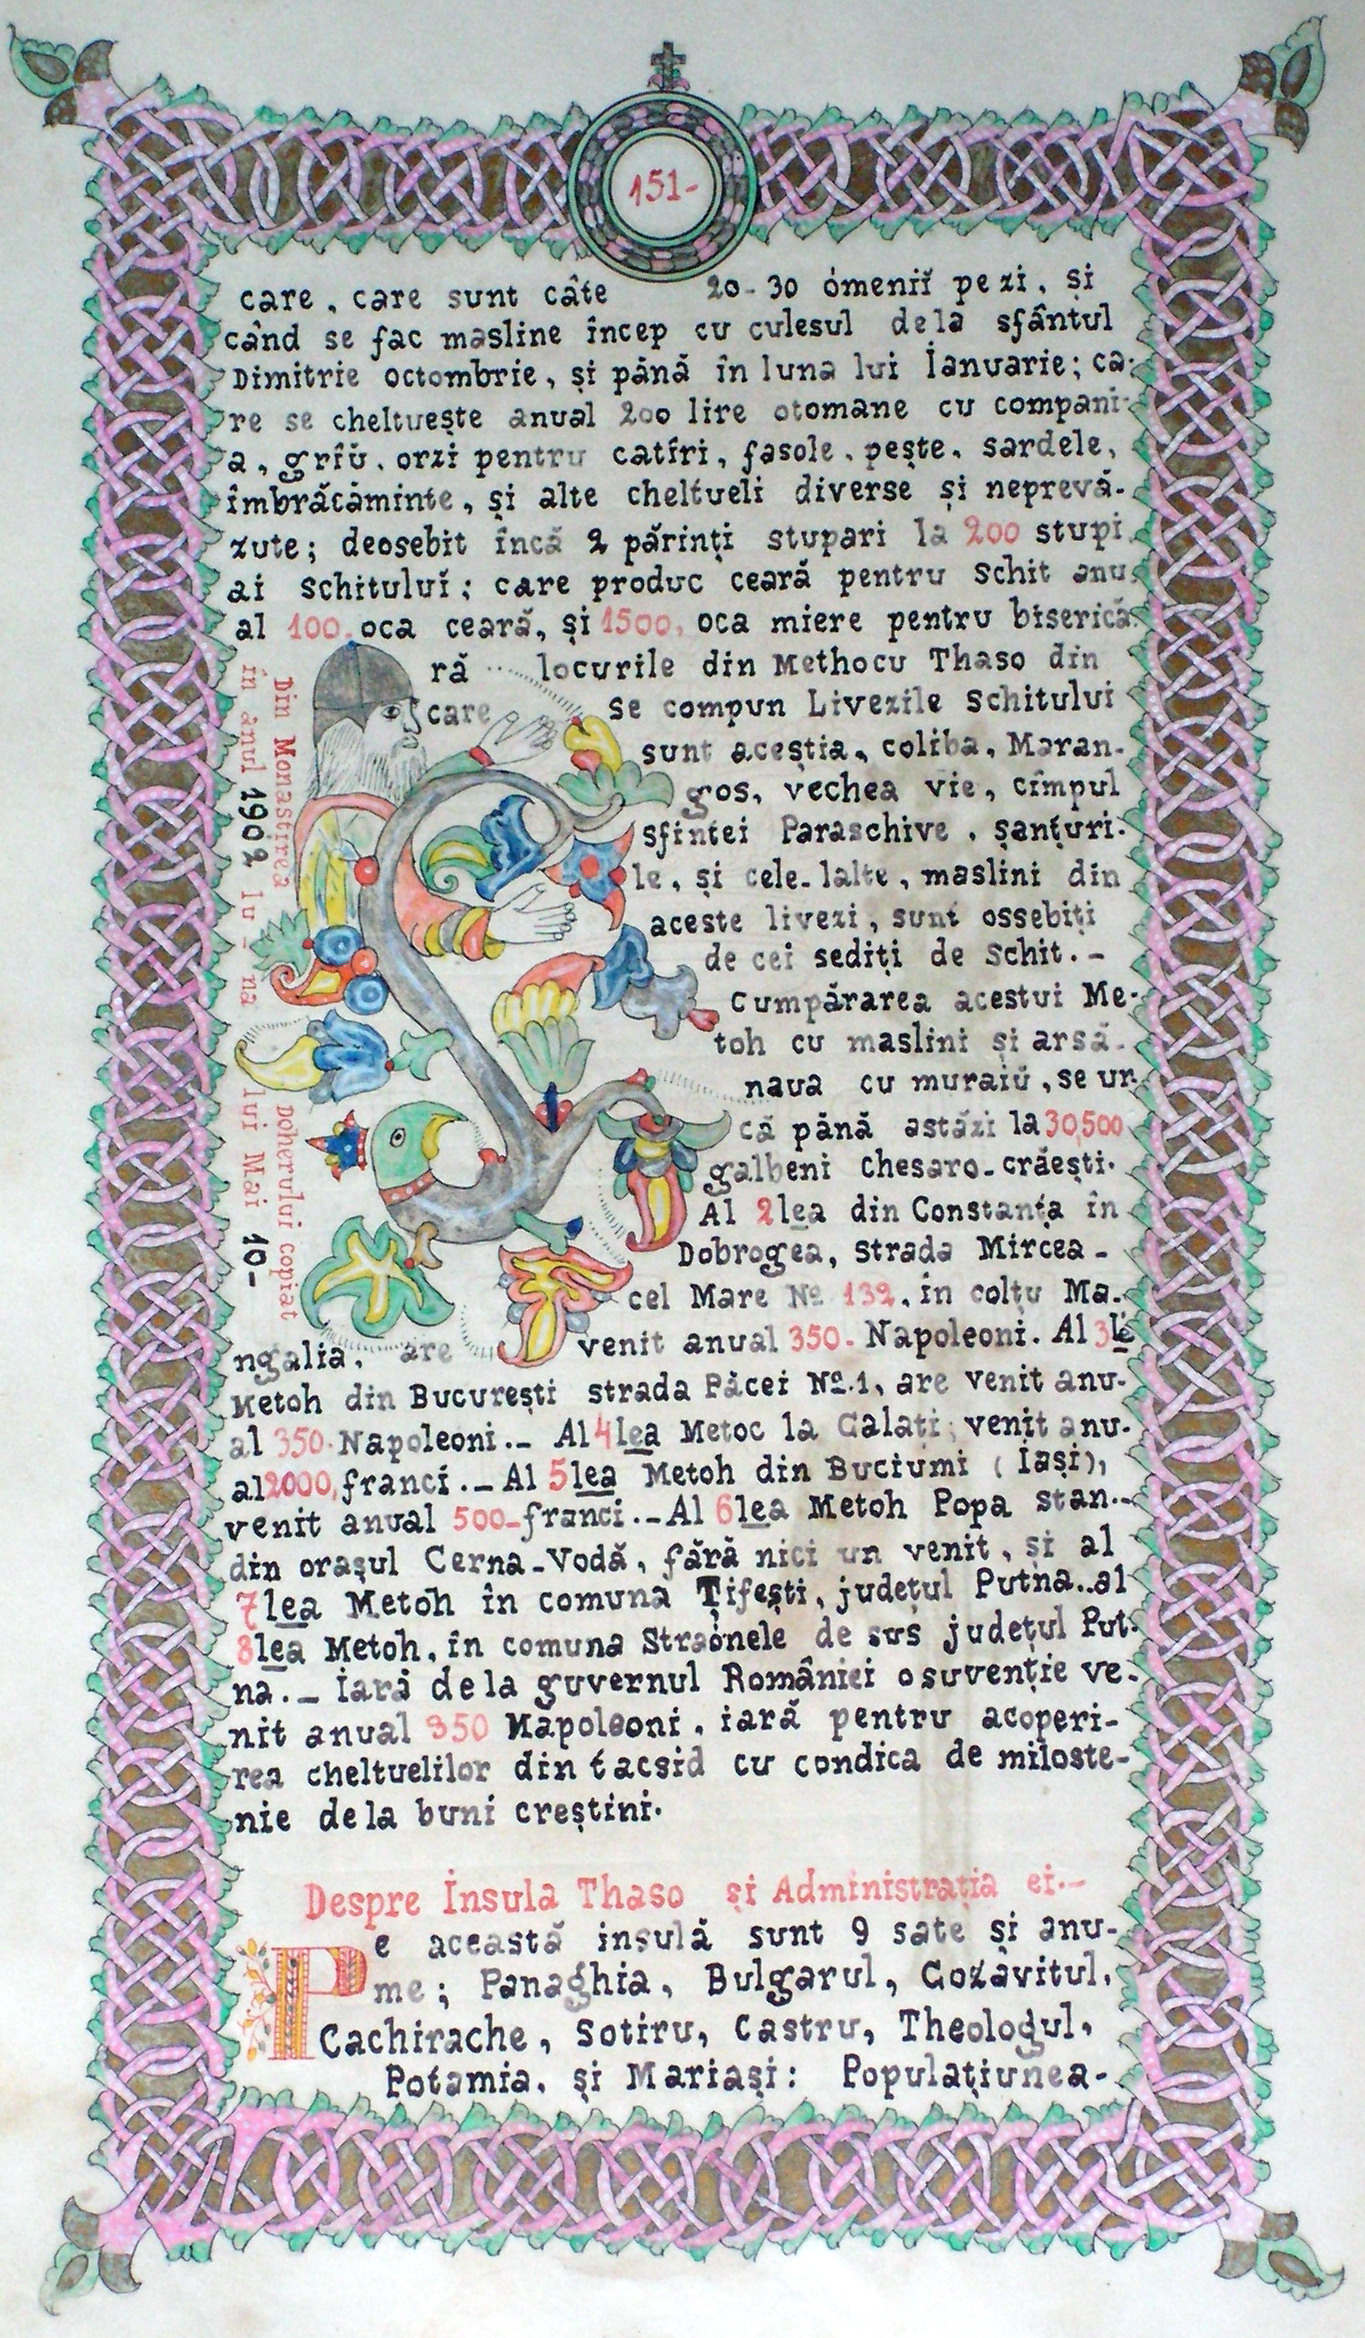 151-
care, care sunt câte 20-30 ómeniĭ pe zi, și
când se fac masline încep cu culesul dela sfântul
Dimitrie octombrie, și până în luna lui Ianuarie; ca-
re se cheltuește anual 200 lire otomane cu compani-
a, grîŭ, orzi pentru catîri, fasole, pește, sardele,
îmbrăcăminte, și alte cheltueli diverse și neprevă-
zute; deosebit încă 2 părinți stupari la 200 stupi
ai Schituluĭ; care produc ceară pentru Schit anu-
al 100. oca ceară, și 1500, oca miere pentru biserică.
ră locurile din Methocu Thaso din
care se compun Livezile Schitului
sunt aceștia, coliba, Maran-
gos, vechea vie, cîmpul
sfintei Paraschive, șanțuri-
le, și cele-lalte, maslini din
aceste livezi, sunt ossebiți
de cei sediți de Schit.-
Cumpărarea acestui Me-
toh cu maslini și arsă-
naua cu muraiŭ, se ur-
că până astăzi la 30,500
galbeni Chesaro-crăești.
Al 2lea din Constanța în
Dobrogea, strada Mircea-
cel Mare Nº 132, în colțu Ma-
ngalia, are venit anual 350- Napoleoni. Al 3le
Metoh din București strada Păcei Nº.1, are venit anu-
al 350. Napoleoni.- Al 4lea Metoc la Galați; venit anu-
al 2000, franci.- Al 5lea Metoh din Buciumi (Iași),
venit anual 500-franci.- Al 6lea Metoh Popa Stan..
din orașul Cerna-Vodă, fără nici un venit, și al
7lea Metoh în comuna Țifești, județul Putna..al
8lea Metoh, în comuna Straonele de sus județul Put-
na.- Iară dela guvernul României o suvenție ve-
nit anual 350 Napoleoni, iară pentru acoperi-
rea cheltuelilor din tacsid cu condica de miloste-
nie dela buni creștini.
Din Monastirea Doherului copiat
în anul 1902 lu-na lui Mai 10-
Despre Insula Thaso și Administrația ei.-
Pe această insulă sunt 9 sate și anu-
me; Panaghia, Bulgarul, Cozavitul,
Cachirache, Sotiru, Castru, Theologul,
Potamia, și Mariași: Populațiunea-